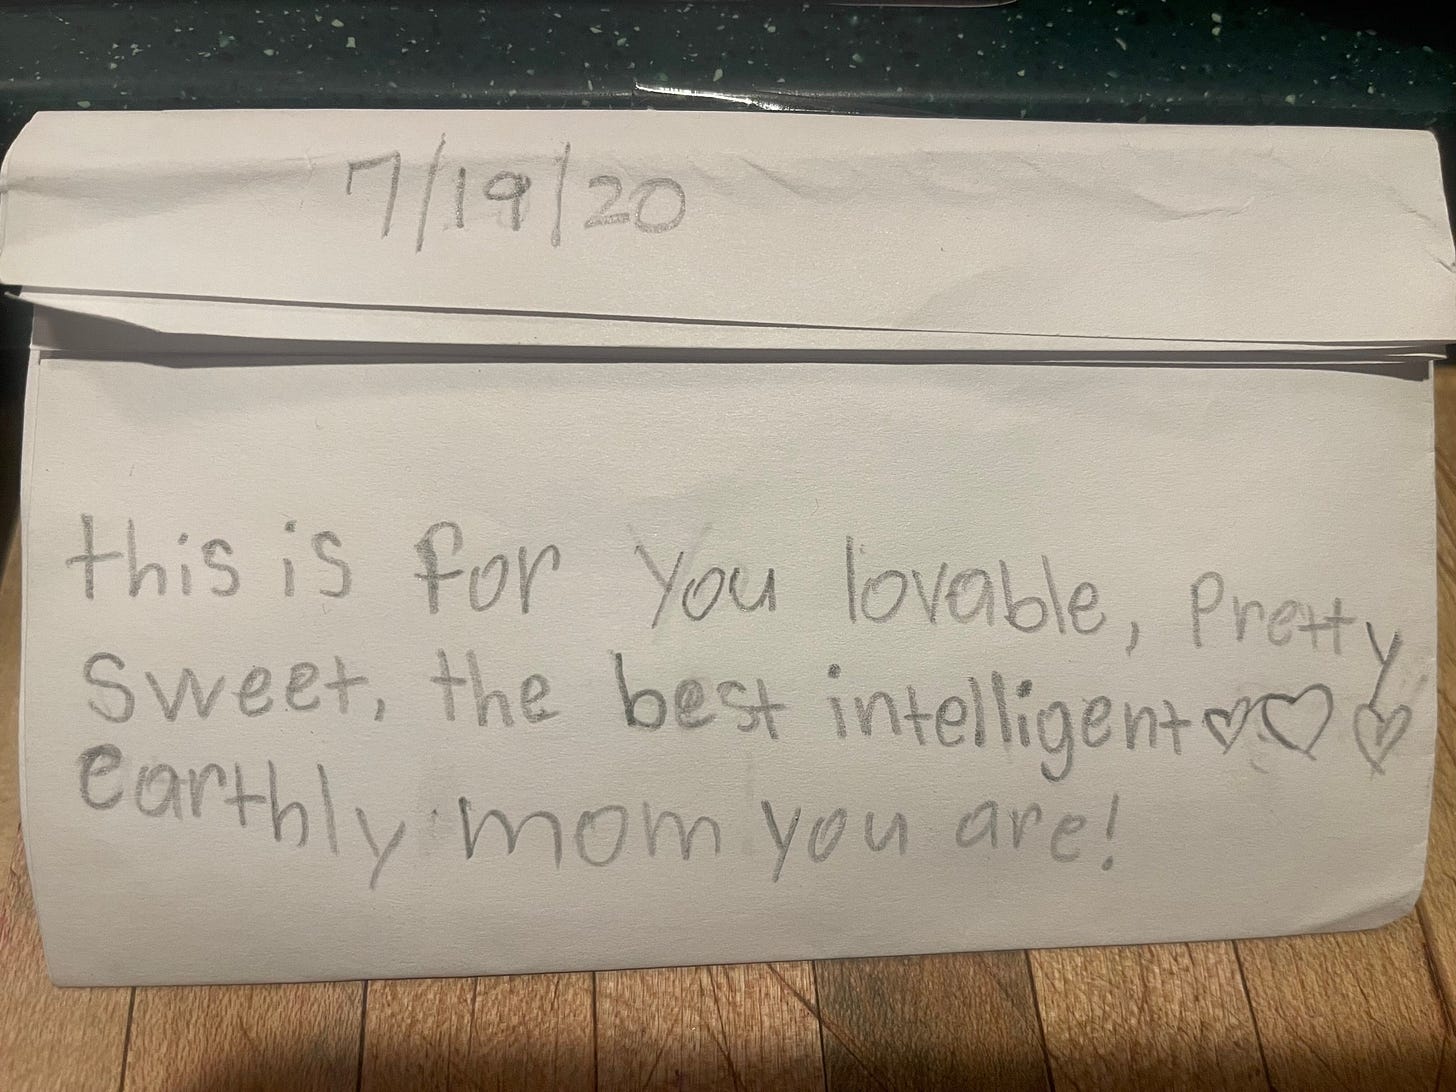 7/19/20
this is for you lovable, Pretty
Sweet, the best intelligent♡♡♡
earthly mom you are!